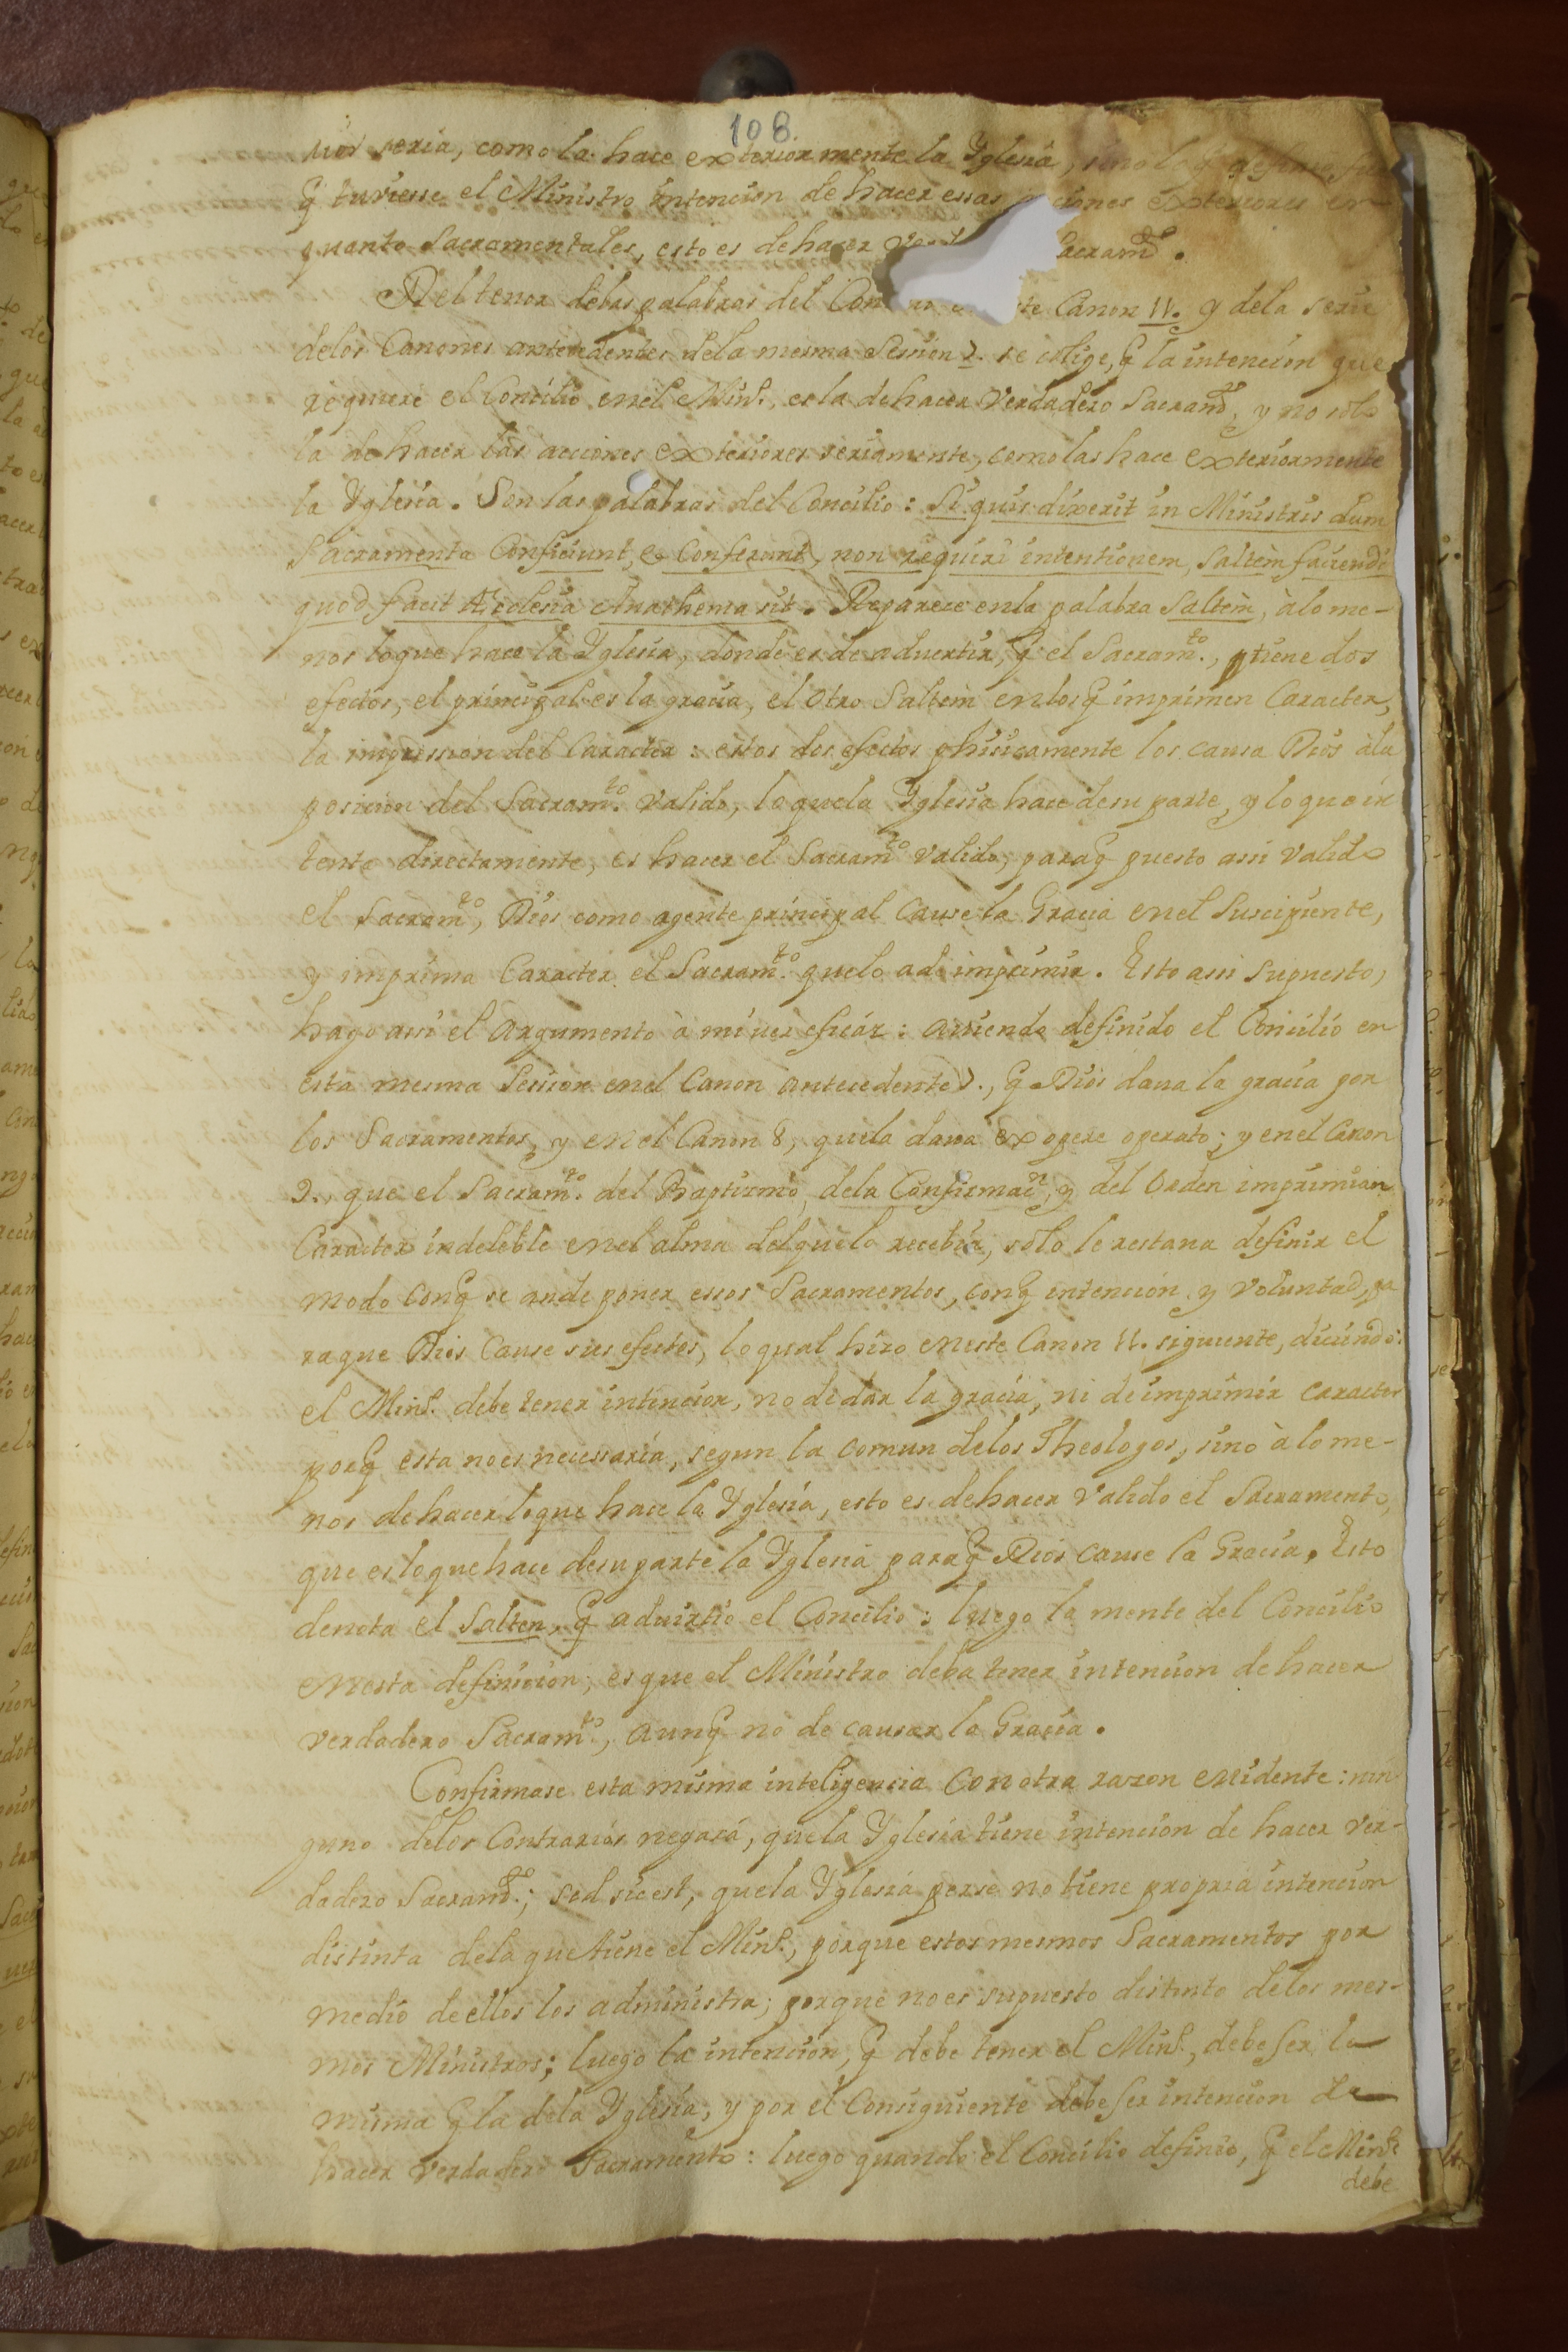 108.
rior seria, como la hace exteriormente la Yglesia, sino lo q̃ define fue
q̃ tuviesse el Ministro intencion de hacer essas acciones exteriores en
quanto Sacramentales, esto es de hacer Sacramto.
Del tenor delas palabras del Canon 11. y dela serie
delos Canones antecedentes dela mesma Session 7. se colige, q̃ la intencion que
requiere el Concilio en el Minº., es la de hacer verdadero Sacramto, y no solo
la de hacer las acciones exteriores seriamente, como las hace exteriormente
la Yglesia. Son las palabras del Concilio: Si quis dixerit in Ministris dum
Sacramenta Conficiunt, & Conferunt, non requiri intentionem, saltem faciendi
quod facit Ecclesia Anathema sit. Reparece en la palabra saltèm, àlo me-
nos loque hace la Yglesia, donde es de aduertir, q̃ el Sacramto., tiene dos
efectos, el principal es la gracia, el otro saltèm en los q̃ imprimen Caracter,
la impression del Caracter: estos dos efectos phisicamente los causa Dios àla
posicion del Sacramto. valido, loquela Yglesia hace desu parte, y lo que in
tenta directamente, es hacer el Sacramto valido, paraq̃ puesto assi valido
el Sacramto, Dios como agente principal Cause la Gracia en el Suscipiente,
y imprima Caracter el Sacramto. quelo ade imprimir. Esto assi supuesto,
hago assi el Argumento à mi ver eficáz: auiendo definido el Concilio en
esta mesma Session en el Canon antecedente 7., q̃ Dios daua la gracia por
los Sacramentos, y en el Canon 8, quela daua ex opere operato; y en el Canon
9., que el Sacramto. del Baptismo, dela Confirmacn, y del Orden imprimian
Caracter indeleble en el alma delquelo recebia, solo le restaua definir el
modo conq̃ se ande poner essos Sacramentos, conq̃ intencion y voluntad, pa
raque Dios Cause sus efectos, lo qual hizo eneste Canon 11. siguiente, diciendo:
el Minº. debe tener intencion, no de dar la gracia, ni de imprimir caracter
porq̃ esta no es necessaria, segun la comun delos Theologos, sino à lo me-
nos de hacer loque hace la Yglesia, esto es de hacer valido el Sacramento,
que es loque hace desu parte la Yglesia paraq̃ Dios cause la Gracia. Esto
denota el Salten, q̃ aduirtio el Concilio: luego la mente del Concilio
enesta definicion, es que el Ministro deba tener intencion de hacer
verdadero Sacramto, aunq̃ no de causar la Gracia.
Confirmase esta misma inteligencia con otra razon euidente: nin
guno delos Contrarios negará, quela Yglesia tiene intencion de hacer ver-
dadero Sacramto.; sed sic est, quela Yglesia per se no tiene propria intencion
distinta dela que tiene el Minº., porque estos mesmos Sacramentos por
medio de ellos los administra; porque no es supuesto distinto delos mes-
mos Ministros; luego la intencion, q̃ debe tener el Minº., debe ser la
misma q̃ la dela Yglesia; y por el Consiguiente debe ser intencion de
hacer verdadero Sacramento: luego quando el Concilio definio, q̃ el Minº.
debe